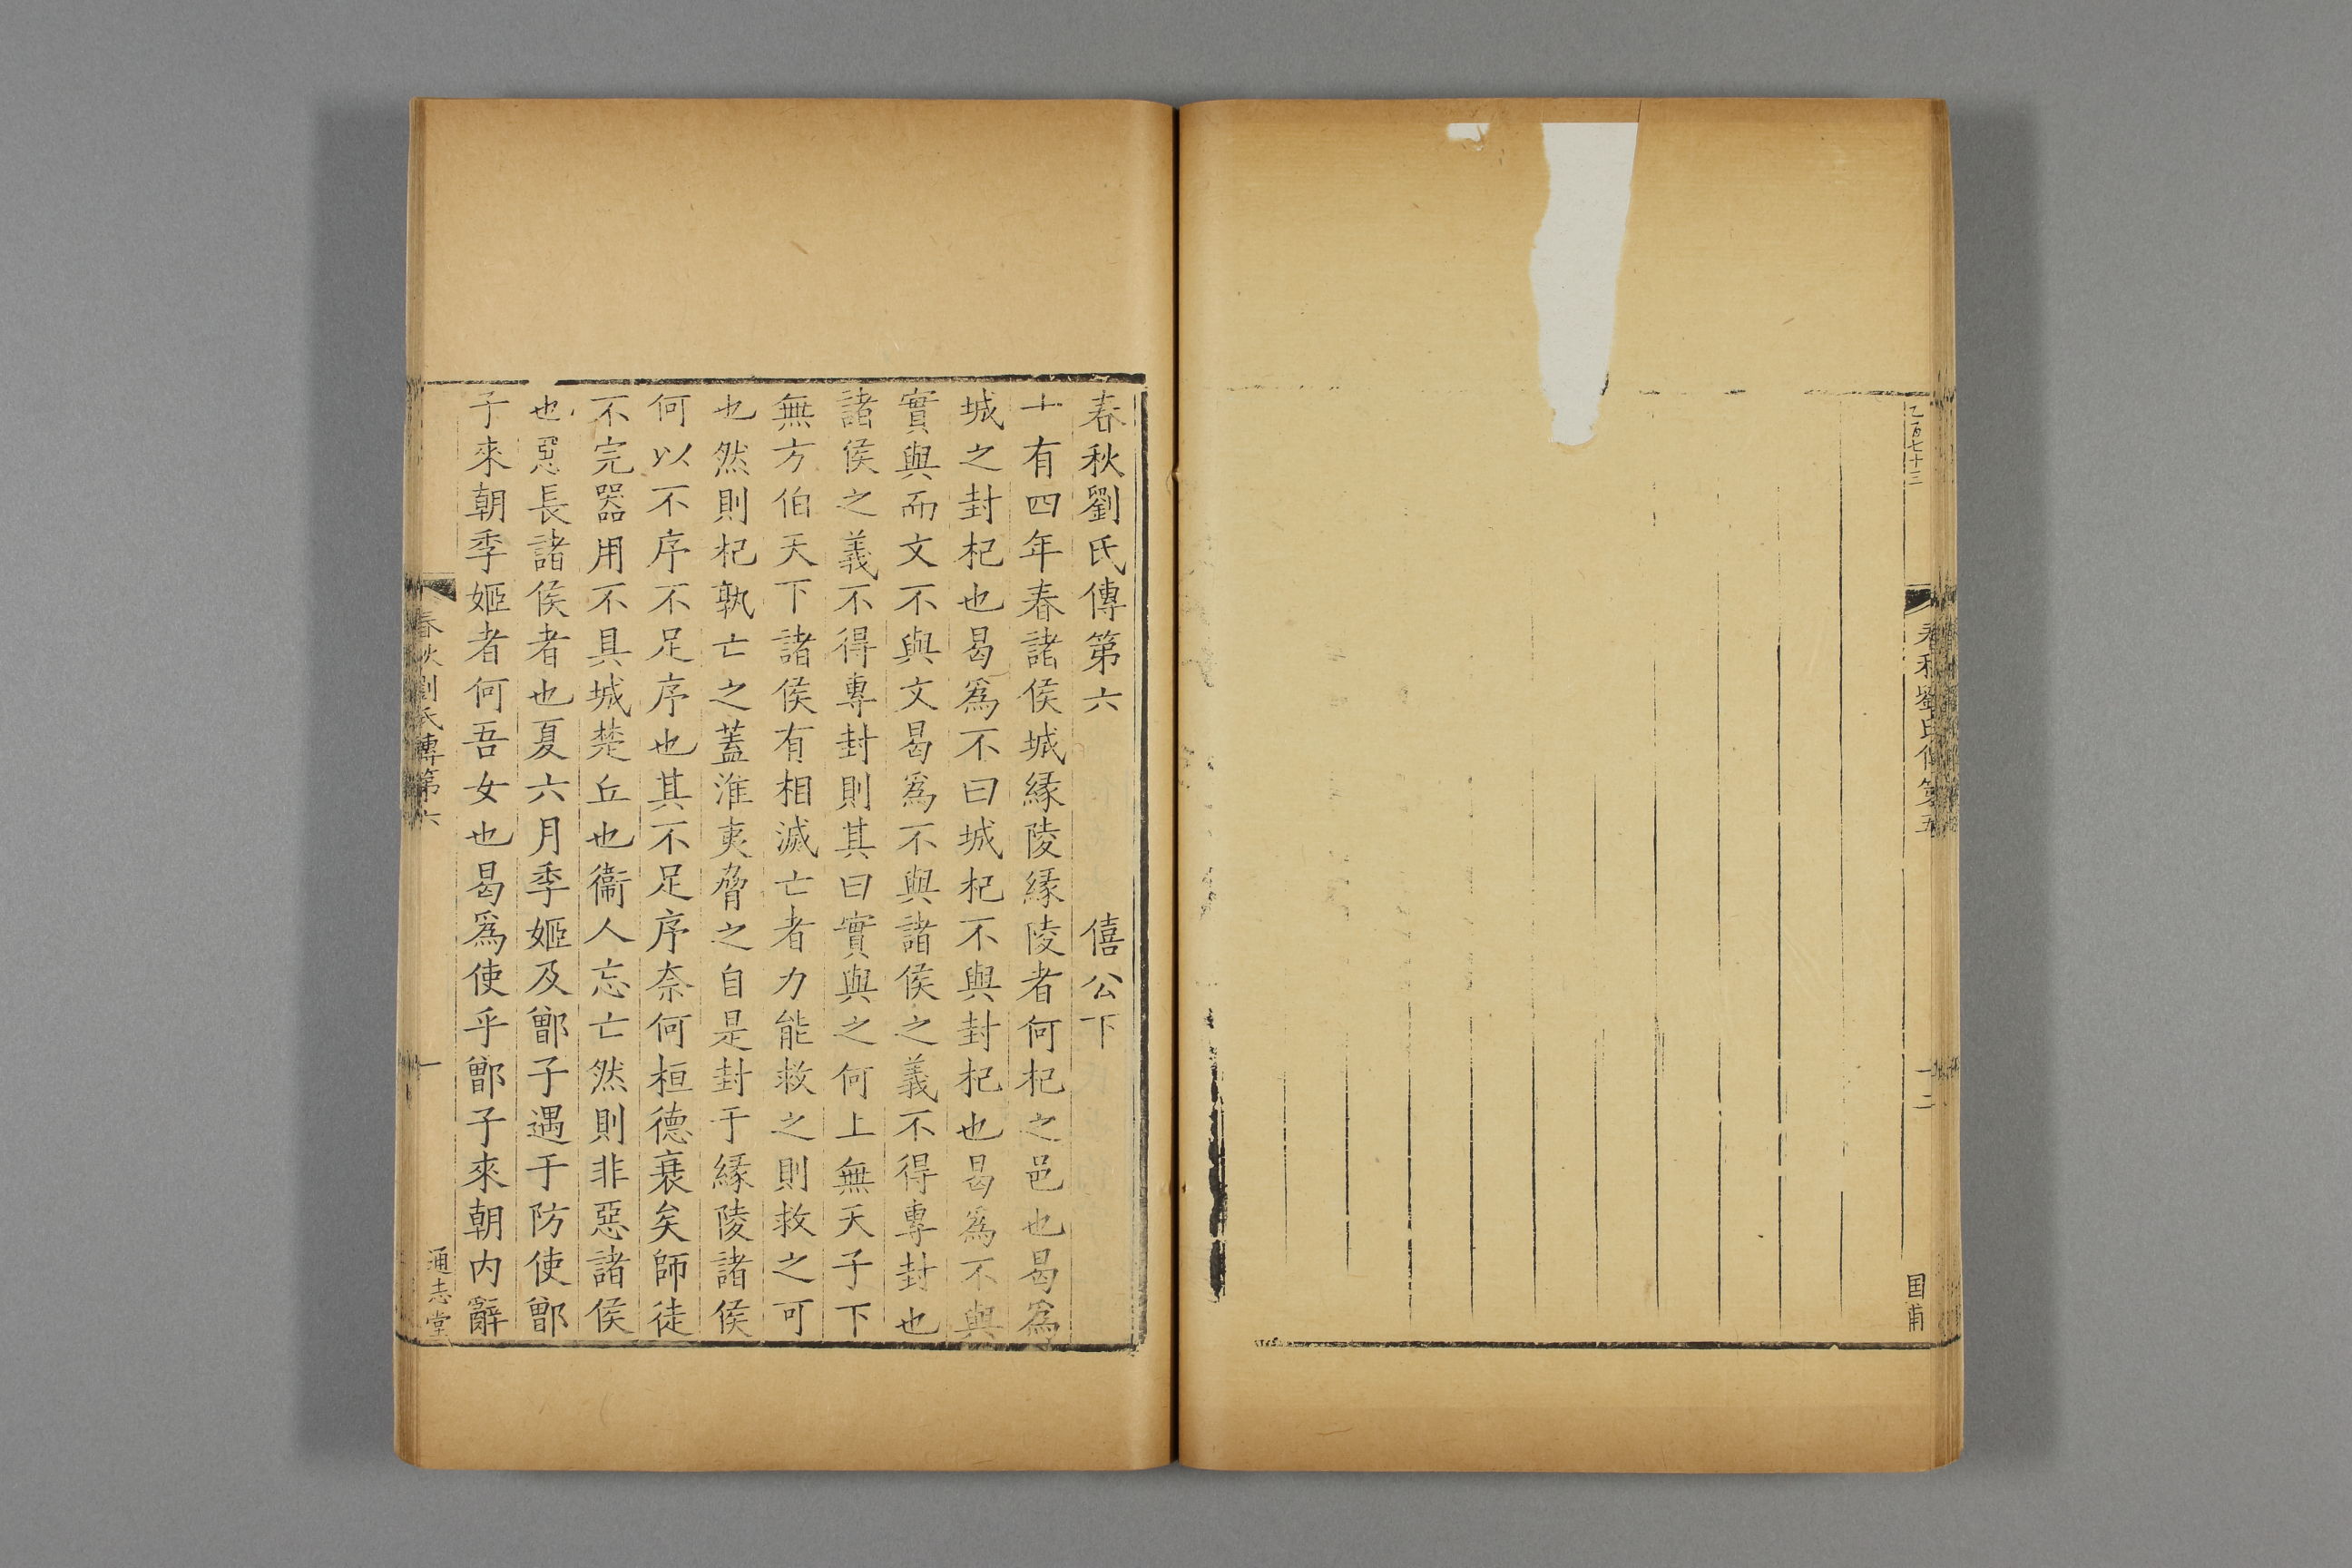 乙百七十三
春秋劉氏傳第五
十二
国甫
春秋劉氏傳第六　僖公下
十有四年春諸侯城緣陵緣陵者何杞之邑也曷爲
城之封杞也曷爲不曰城杞不與封杞也曷爲不與
實與而文不與文曷爲不與諸侯之義不得專封也
諸侯之義不得專封則其曰實與之何上無天子下
無方伯天下諸侯有相滅亡者力能救之則救之可
也然則杞孰亡之蓋淮夷脅之自是封于緣陵諸侯
何以不序不足序也其不足序奈何桓德衰矣師徒
不完器用不具城楚丘也衞人忘亡然則非惡諸侯
也惡長諸侯者也夏六月季姬及鄫子遇于防使鄫
子來朝季姬者何吾女也曷爲使乎鄫子來朝内辭
春秋劉氏傳第六
一
通志堂